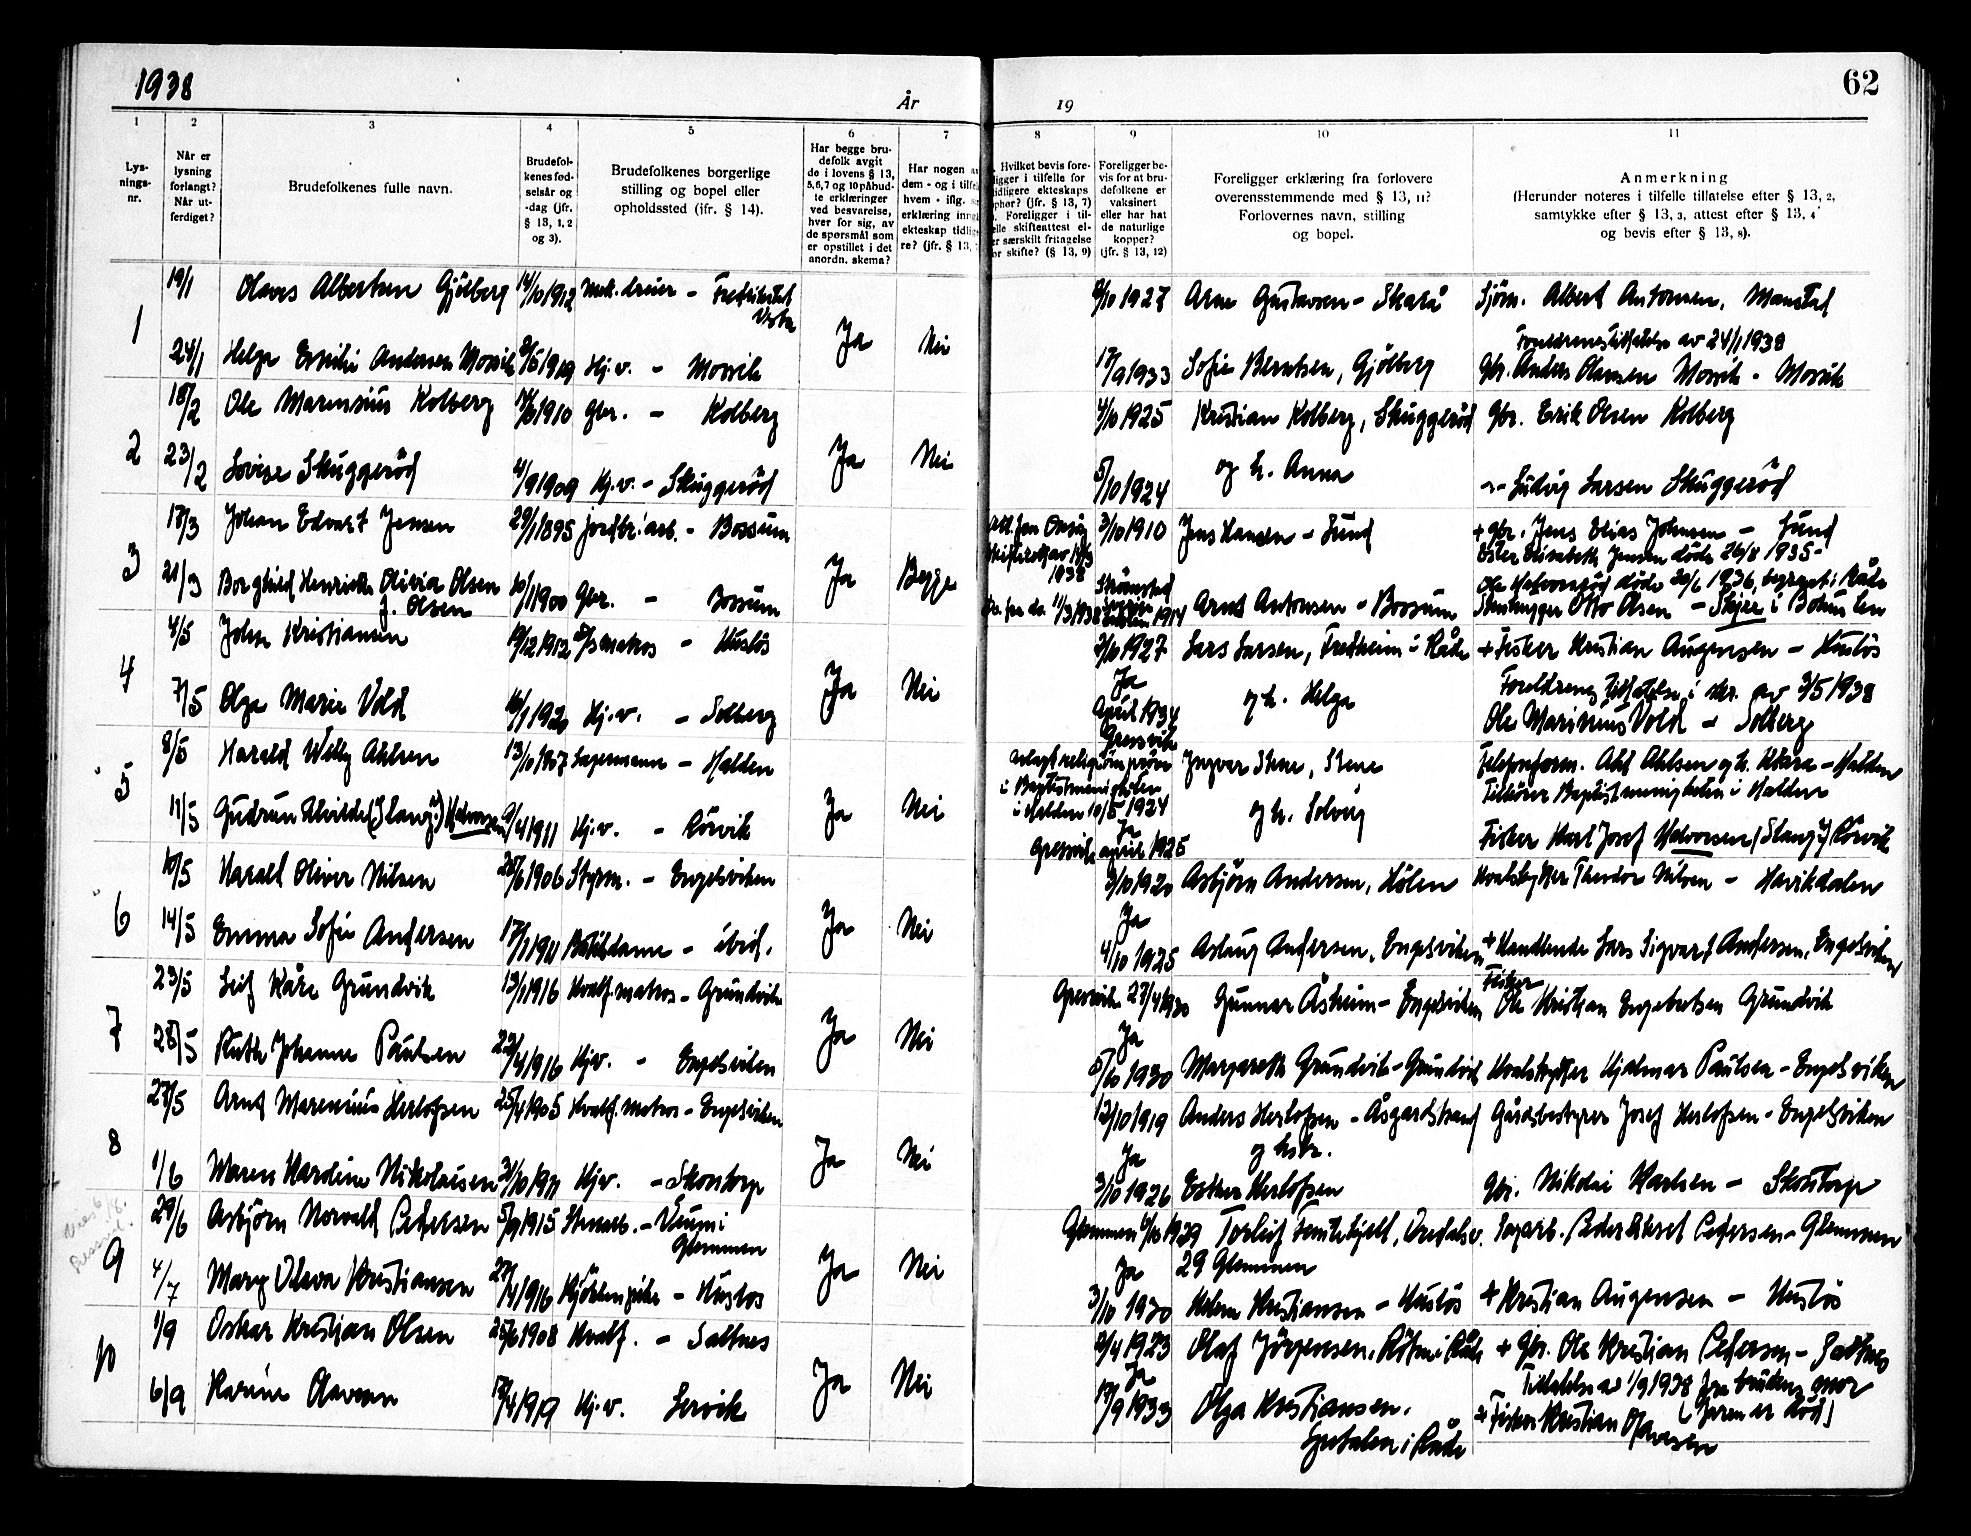 1938
År
19
62
1 2 3 4 5 6 7 8 9 10 11
Lys-
nings-
nr.
Når er
lysning
forlangt?
Når ut-
ferdiget?
Brudefolkenes fulle navn.
Brudefol-
kenes fød-
selsår og
-dag (jfr.
§ 13, 1, 2
og 3).
Brudefolkenes borgerlige
stilling og bopel eller
opholdssted (jfr. § 14).
Har begge bru-
defolk avgit
de i lovens § 13,
5,6,7 og 10 påbud-
te erklæringer
ved besvarelse,
hver for sig, av
de spørsmål som
er opstillet i det
anordn. skema?
Har nogen a
dem - og i tilfel
hvem - iflg. s
erklæring inng
ekteskap tidlig
re? (jfr. § 13,
Hvilket bevis fore-
ligger i tilfelle for
idligere ekteskaps
phør? (jfr. § 13, 7)
Foreligger i til-
elle skifteattest el-
er særskilt fritagelse
or skifte? (§ 13, 9)
Foreligger be-
vis for at bru-
defolkene er
vaksinert
eller har hat
de naturlige
kopper?
(jfr. § 13, 12)
Foreligger erklæring fra forlovere
overensstemmende med § 13, 11?
Forlovernes navn, stilling
og bopel.
Anmerkning
(Herunder noteres i tilfelle tillatelse efter § 13, 2,
samtykke efter § 13, 3, attest efter § 13, 4
og bevis efter § 13, 8).
1
19/1 Olaves Albertsen Gjölberg 14/10 1912 Mek. dreier - Fredrikstad 1927 Arne Gustavsen - Skarå Sjöm. Albert Antonsen, Manstad
Ja Nei
Foreldrenes tillatelse av 24/1 1938
24/1 Helga Emilie Andersen Morvik 1919 Hj.v. - Morvik 17/9 1933 Sofie Berntsen, Gjölberg Gbr. Anders Olausen Morvik - Morvik
2
18/2 Ole Marensius Kolberg 1910 Gbr. - Kolberg 4/10 1925 Kristian Kolberg, Skuggeröd Gbr. Erik Olsen Kolberg
Ja Nei
og h. Anna
23/2 Lovise Skuggeröd 4/9 1909 Hj.v. - Skuggeröd 5/10 1924 Ludvig Larsen Skuggeröd
3
17/3 Johan Edvart Jensen 29/1 1895 jordbr.arb. - Bossum 3/10 1910 Jens Hansen - Lund + gbr. Jens Elias Johnsen - Lund
1938
Ester Elisabeth Jensen døde 26/8 1935 -
Ja Begge
Ole Halvorsröd döde 20/6 1936, begravet i Råde
21/3 Borghild Henriette Olivia Olsen 1900 Gbr. - Bossum 1914 Arnt Antonsen - Bossum Stenhugger Otto Olsen - Skjee i Bohuslen
f. Olsen
4
4/5 Johan Kristiansen 19/12 1912 matros - Huslös 1927 Lars Larsen, Fredheim i Råde + Fisker Kristian Augensen - Huslös
Ja Nei Ja
og h. Helga
Foreldrenes tillatelse i skr. av 3/5 1938
7/5 Olga Marie Vold 16/1 1920 Hj.v. - Solberg April 1934 Ole Marinius Vold - Solberg
Gressvik
5
8/5 Harald Willy Ahlsen 13/10 1907 Lagermann - Halden Ingvar Stene, Stene Telefonform. Axel Ahlsen og h. Klara - Halden
i Baptistmenigheten
i Halden 10/5 1924
Tilhörer Baptistmenigheten i Halden
Ja Nei Ja
og h. Solveig
11/5 Gudrun Alvilde Halvorsen 9/4 1911 Hj.v. - Rörvik Gressvik april 1925 Fisker Karl Josef Halvorsen (Slang?) Rörvik
6
10/5 Harald Oliver Nilsen 1906 Styrm. - Engelsviken 3/10 1920 Asbjörn Andersen, Hölen Hvalskytter Theodor Nilsen - Havikdalen
Ja Nei Ja
14/5 Emma Sofie Andersen 17/1 1911 - ibid. 4/10 1925 Aslaug Andersen, Engelsviken + Handlende Lars Sigvard Andersen, Engelsviken
7
23/5 Leif Kåre Grundvik 13/1 1916 Hvalf.matros - Grundvik Gressvik 27/4 1930 Gunnar Åsheim - Engelsviken Fisker Ole Kristian Engebretsen Grundvik
Ja Nei Ja
28/5 Ruth Johanne Paulsen 22/4 1916 Hj.v. - Engelsviken 5/10 1930 Margareth Grundvik - Grundvik Hvalskytter Hjalmar Paulsen - Engelsviken
8
27/5 Arnt Marensius Herlofsen 25/4 1905 Hvalf.matros - Engelsviken 12/10 1919 Anders Herlofsen - Åsgardstrand Gårdbestyrer Josef Herlofsen - Engelsviken
og hstr.
Ja Nei Ja
1/6 Maren Hardine Nikolaisen 31/10 1911 Hj.v. - Skontorp 3/10 1926 Esther Herlofsen Gbr. Nikolai Karlsen - Skontorp
9
29/6 Asbjörn Norvald Pedersen 5/9 1915 - Veum i Glemmen Glemmen 1929 Torleif Femtehjell, 29 Glemmen Pedersen - Glemmen
Ja Nei Ja
4/7 Mary Olava Kristiansen 27/4 1916 Kjökkenpike - Huslös 3/10 1930 Helene Kristiansen - Huslös + Kristian Augensen - Huslös
10
1/9 Oskar Kristian Olsen 1908 Hvalf. - Saltnes 2/4 1923 Olaf Jörgensen, i Råde + Gbr. Ole Kristian Pedersen - Saltnes
Ja Nei Ja
Tillatelse av 1/9 1938 fra brudens mor
(faren er död)
6/9 Karine Olavesen 17/4 1919 Hj.v. Lervik 17/9 1933 Olga Kristiansen, + Fisker Kristian Olavesen
Spetalen i Råde